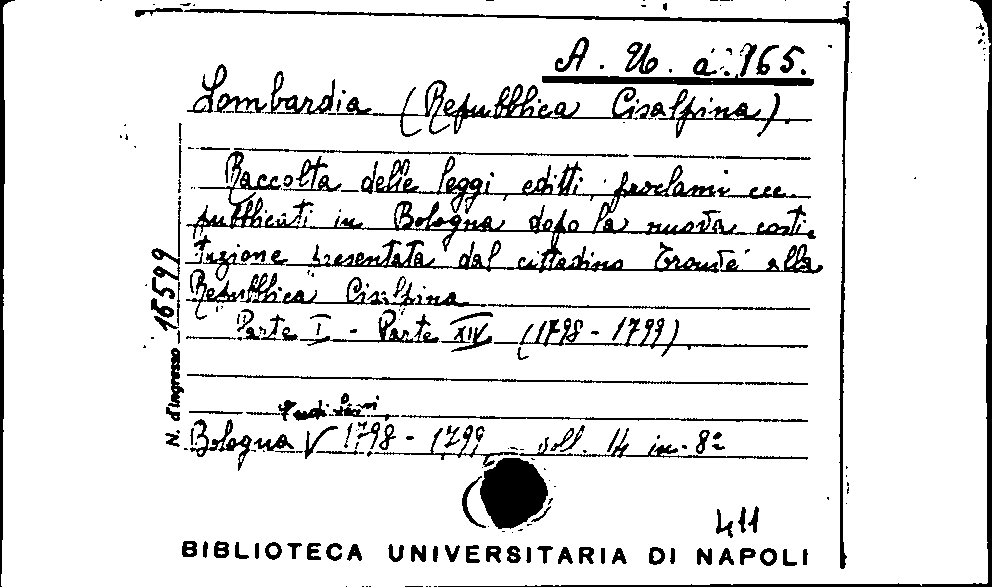 A. U. a. 165.
Lombardia (Repubblica Cisalpina).
Raccolta delle leggi, editti, proclami ecc.
pubblicati in Bologna dopo la nuova costi-
tuzione presentata dal cittadino Trouvé alla
Repubblica Cisalpina
Parte I - Parte XIV (1798 - 1799).
Bologna √ 1798 - 1799 voll. 14 in-8º
N. d'ingresso 16599
411
BIBLIOTECA UNIVERSITARIA DI NAPOLI